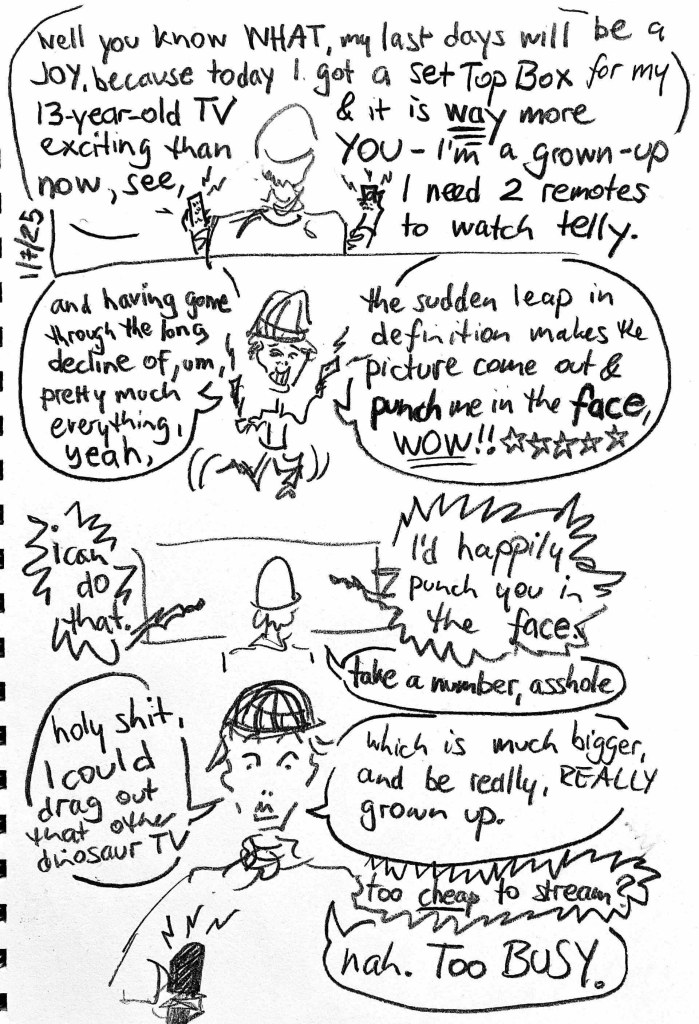 well you know WHAT, my last days will be a
JOY, because today I got a set Top Box for my
13-year-old TV & it is way more
exciting than YOU - I'm a grown-up
now, see, I need 2 remotes
to watch telly.
1/7/25
and having gone
through the long
decline of, um,
pretty much
everything,
yeah,
the sudden leap in
definition makes the
picture come out &
punch me in the face,
WOW!! ☆☆☆☆☆
i can
do
that.
I'd happily
punch you in
the face.
take a number, asshole
holy shit,
I could
drag out
that other
dinosaur TV
which is much bigger,
and be really, REALLY
grown up.
too cheap to stream?
nah. Too BUSY.